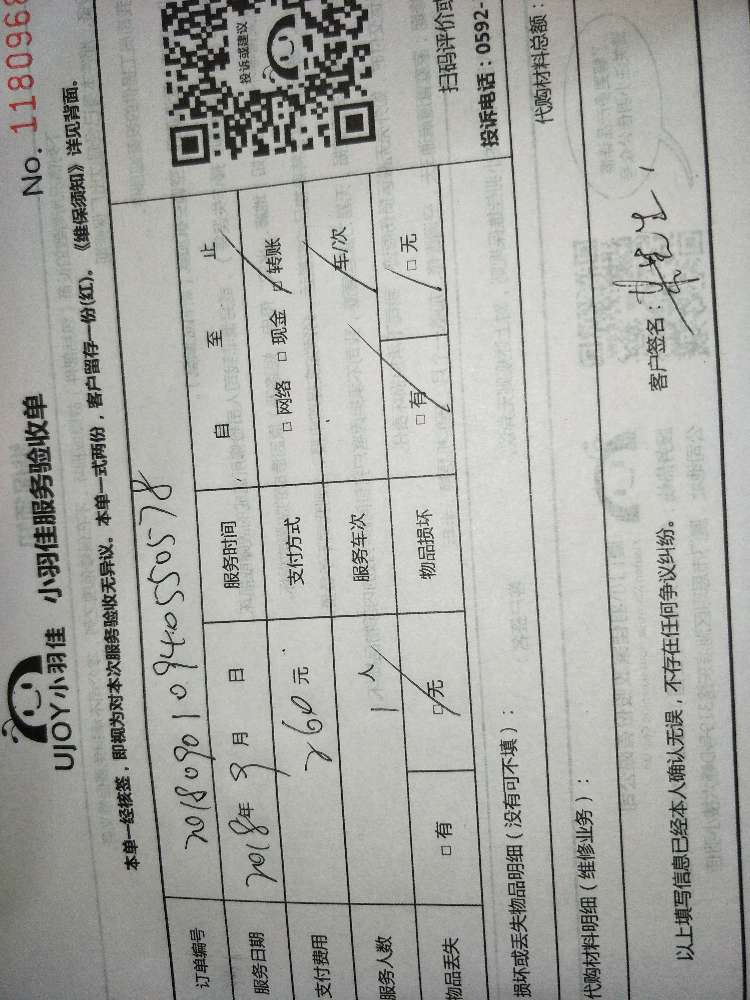 No. 1180968
UJOY小羽佳 小羽佳服务验收单
本单一经核签，即视为对本次服务验收无异议。本单一式两份，客户留存一份(红)。《维保须知》详见背面。
订单编号 201809010940550578
服务日期 2018年 9月 日 服务时间 自 至 止
支付费用 260元 支付方式 □ 网络 □ 现金 □ 转账
服务人数 1人 服务车次 车/次
物品丢失 □ 有 □ 无 物品损坏 □ 有 □ 无
投诉或建议
扫码评价或
投诉电话：0592-
损坏或丢失物品明细（没有可不填）：
代购材料明细（维修业务）： 代购材料总额：
以上填写信息已经本人确认无误，不存在任何争议纠纷。
客户签名： 先生